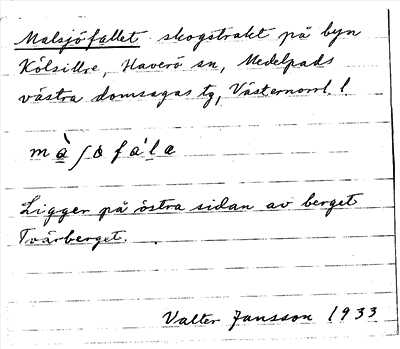 Malsjöfallet skogstrakt på byn
Kölsillre, Haverö sn, Medelpads
västra domsagas tg, Västernorrl. l.
mà̱ʃofá̱la̱
Ligger på östra sidan av berget
Tvärberget.
Valter Jansson 1933